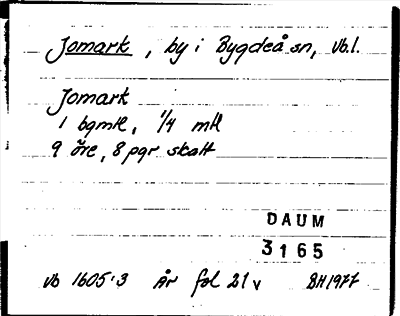 Jomark, by i Bygdeå sn, Vb.l.
Jomark
1 bgmtl, 1/4 mtl
9 öre, 8 pgr skatt
DAUM
3165
Vb 1605:3 År fol 21 v BH 1977